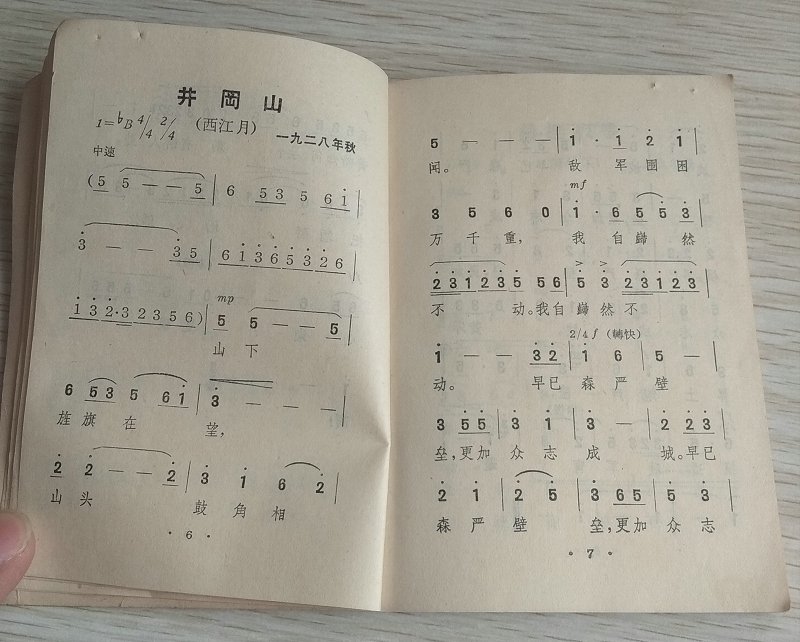 井岡山
1=♭B 4/4 2/4 (西江月) 一九二八年秋
中速
(5 5 — — 5 | 6 53 5 61 |
3 — — 35 | 61365326
132·32356) | 5 5 — — 5 |
mp
山 下
6 53 5 61 | 3 — — — |
旌 旗 在 望,
2 2 — — 2 | 3 1 6 2 |
山 头 鼓 角 相
· 6 ·
5 — — — | 1 · 1 2 1 |
闻。 敌 军 围 困
mf
3 5 6 0 | 1 · 6 5 5 3 |
万 千 重, 我 自 巋 然
231235 56 | 5 3 23123 |
不 动。我自 巋然不
2/4 f (轉快)
1 — — 32 | 1 6 | 5 — |
动。 早已 森 严 壁
3 55 | 3 1 | 3 — | 2 23 |
垒,更加 众 志 成 城。早已
2 1 | 2 5 | 3 65 | 5 3 |
森 严 壁 垒,更加 众 志
· 7 ·